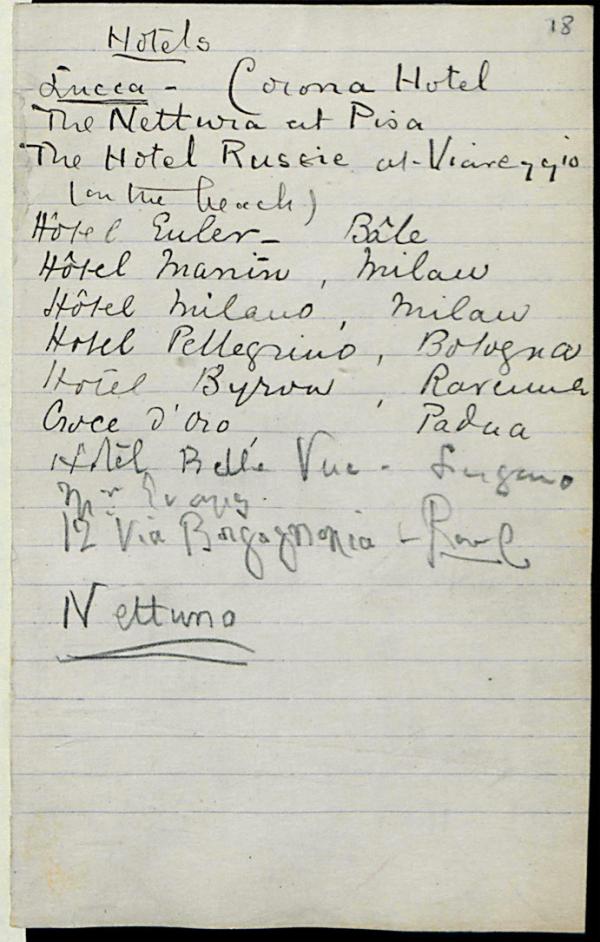 18
Hotels
Lucca - Corona Hotel
The Nettuna at Pisa
The Hotel Russie at Viareggio
(on the beach)
Hôtel Euler - Bâle
Hôtel Manin, Milan
Hôtel Milano, Milan
Hotel Pellegrino, Bologna
Hotel Byron, Ravenna
Croce d'Oro Padua
Hôtel Belle Vue - Lugano
12 Via Borgognonia -
Nettuno